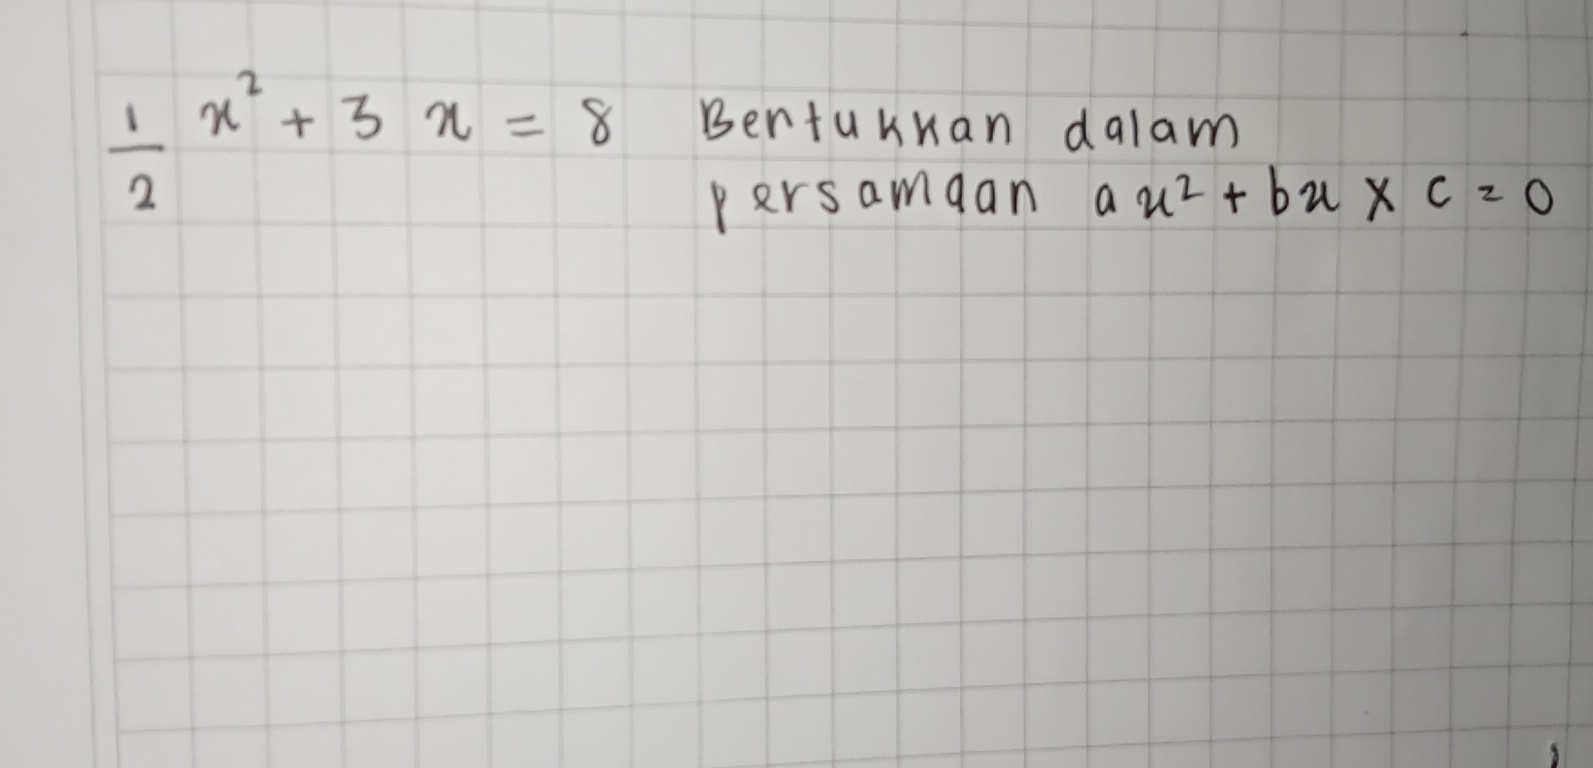 1/2 x² + 3 x = 8 Bentukkan dalam
persamaan ax² + bx x c = 0